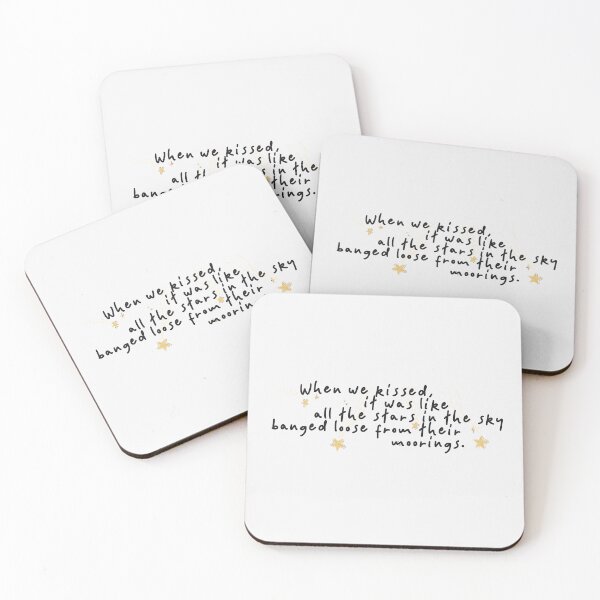 When we kissed,
it was like
all in the
their
When we kissed,
it was like
all the stars in the sky
banged loose from their
moorings.
When we kissed,
it was like
all the stars in the sky
banged loose from their
When we kissed,
it was like
all the stars in the sky
banged loose from their
moorings.